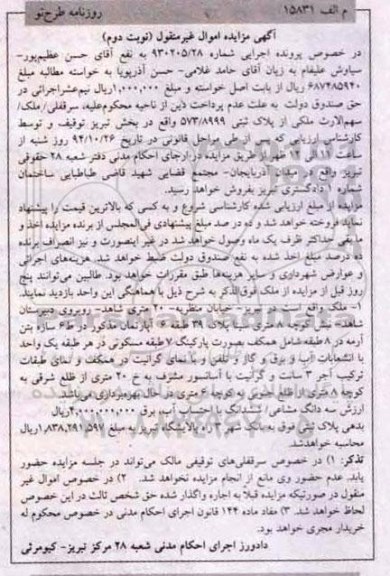 م الف ۱۵۸۳۱ روزنامه طرح‌نو
آگهی مزایده اموال غیرمنقول (نوبت دوم)
در خصوص پرونده اجرایی شماره ۹۳۰۲۰۵/۲۸ به نفع آقای حسن عظیم‌پور-
سیاوش علیفام به زیان آقای حامد غلامی- حسن آذرپویا به خواسته مطالبه مبلغ
۶۸۷/۲۸۵۹۴۰ ریال از بابت اصل خواسته و مبلغ ۱,۰۰۰,۰۰۰ریال نیم‌عشراجرائی در
حق صندوق دولت به علت عدم پرداخت دین از ناحیه محکوم‌علیه، سرقفلی/ملک/
سهم‌الارث ملکی از پلاک ثبتی ۵۷۳/۸۹۹۹ واقع در بخش تبریز توقیف و توسط
کارشناس ارزیابی که پس از طی مراحل قانونی در تاریخ ۹۴/۱۰/۲۶ روز شنبه از
ساعت ۱۱ الی ۱۲ ظهر از طریق مزایده در اجرای احکام مدنی دفتر شعبه ۲۸ حقوقی
تبریز واقع در میدان آذربایجان- مجتمع قضایی شهید قاضی طباطبایی ساختمان
شماره ۱ دادگستری تبریز بفروش خواهد رسید.
مزایده از مبلغ ارزیابی شده کارشناسی شروع و به کسی که بالاترین قیمت را پیشنهاد
نماید فروخته خواهد شد و ده در صد مبلغ پیشنهادی فی‌المجلس از برنده مزایده اخذ و
مابقی حداکثر ظرف یک ماه وصول خواهد شد در غیر اینصورت و نیز انصراف برنده
ده درصد مبلغ اخذ شده به نفع صندوق دولت ضبط خواهد شد. هزینه‌های اجرائی
و عوارض شهرداری و سایر هزینه‌ها طبق مقررات خواهد بود. طالبین می‌توانند پنج
روز قبل از مزایده از ملک فوق‌الذکر به شرح ذیل با هماهنگی این واحد بازدید نمایند.
۱- ملک واقع در تبریز- خیابان منظریه- ۲۰ متری شاهد- روبروی دبیرستان
شاهد- سر کوچه ۸ متری سینا پلاک ۳۹ طبقه ۴ آپارتمان مذکور در ط۶ سازه بتن
آرمه در ۸ طبقه شامل همکف بصورت پارکینگ ۷ طبقه مسکونی در هر طبقه یک واحد
با انشعابات آب و برق و گاز و تلفن و با نمای گرانیت در همکف و نمای طبقات
ترکیب آجر ۳ سانت و گرانیت با آسانسور مشرف به خ ۲۰ متری از ظلع شرقی به
کوچه ۸ متری از ظلع جنوبی و کوچه ۶ متری در حال بهره‌برداری می‌باشد.
ارزش سه دانگ مشاعی از ششدانگ با احتساب آب، برق ۲,۰۰۰,۰۰۰,۰۰۰ریال
بدهی پلاک ثبتی فوق به بانک مهر پالایشگاه تبریز به مبلغ ۱,۸۳۸,۲۹۱,۵۹۷ریال
محاسبه خواهدشد.
تذکر: ۱) در خصوص سرقفلی‌های توقیفی مالک می‌تواند در جلسه مزایده حضور
یابد. عدم حضور وی مانع از انجام مزایده نخواهد شد. ۲) در خصوص اموال غیر
منقول در صورتیکه مزایده قبلا به اجاره واگذار شده حق شخص ثالث در این خصوص
لحاظ خواهد شد. ۳) مفاد ماده ۱۴۴ قانون اجرای احکام مدنی در خصوص محکوم له
خریدار مجری خواهد بود.
دادورز اجرای احکام مدنی شعبه ۲۸ مرکز تبریز- کیومرثی